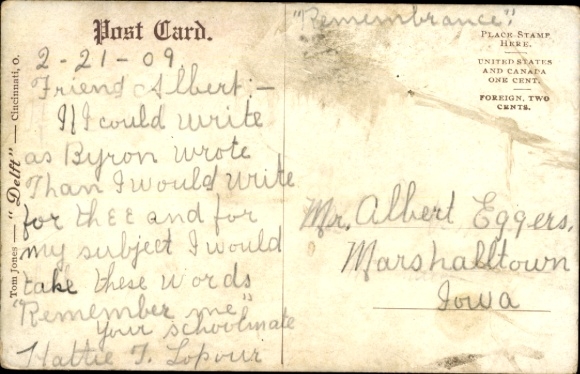 "Remembrance".
Post Card.
PLACE STAMP
HERE.
UNITED STATES
AND CANADA
ONE CENT.
FOREIGN, TWO
CENTS.
2-21-09.
Friend Albert:—
If I could write
as Byron wrote
Than I would write
for thEE and for
my subject I would
take these words
"Remember me"
your schoolmate
Hattie T. Lopour
Mr. Albert Eggers,
Marshalltown
Iowa
Tom Jones — "Delft" — Cincinnati, O.